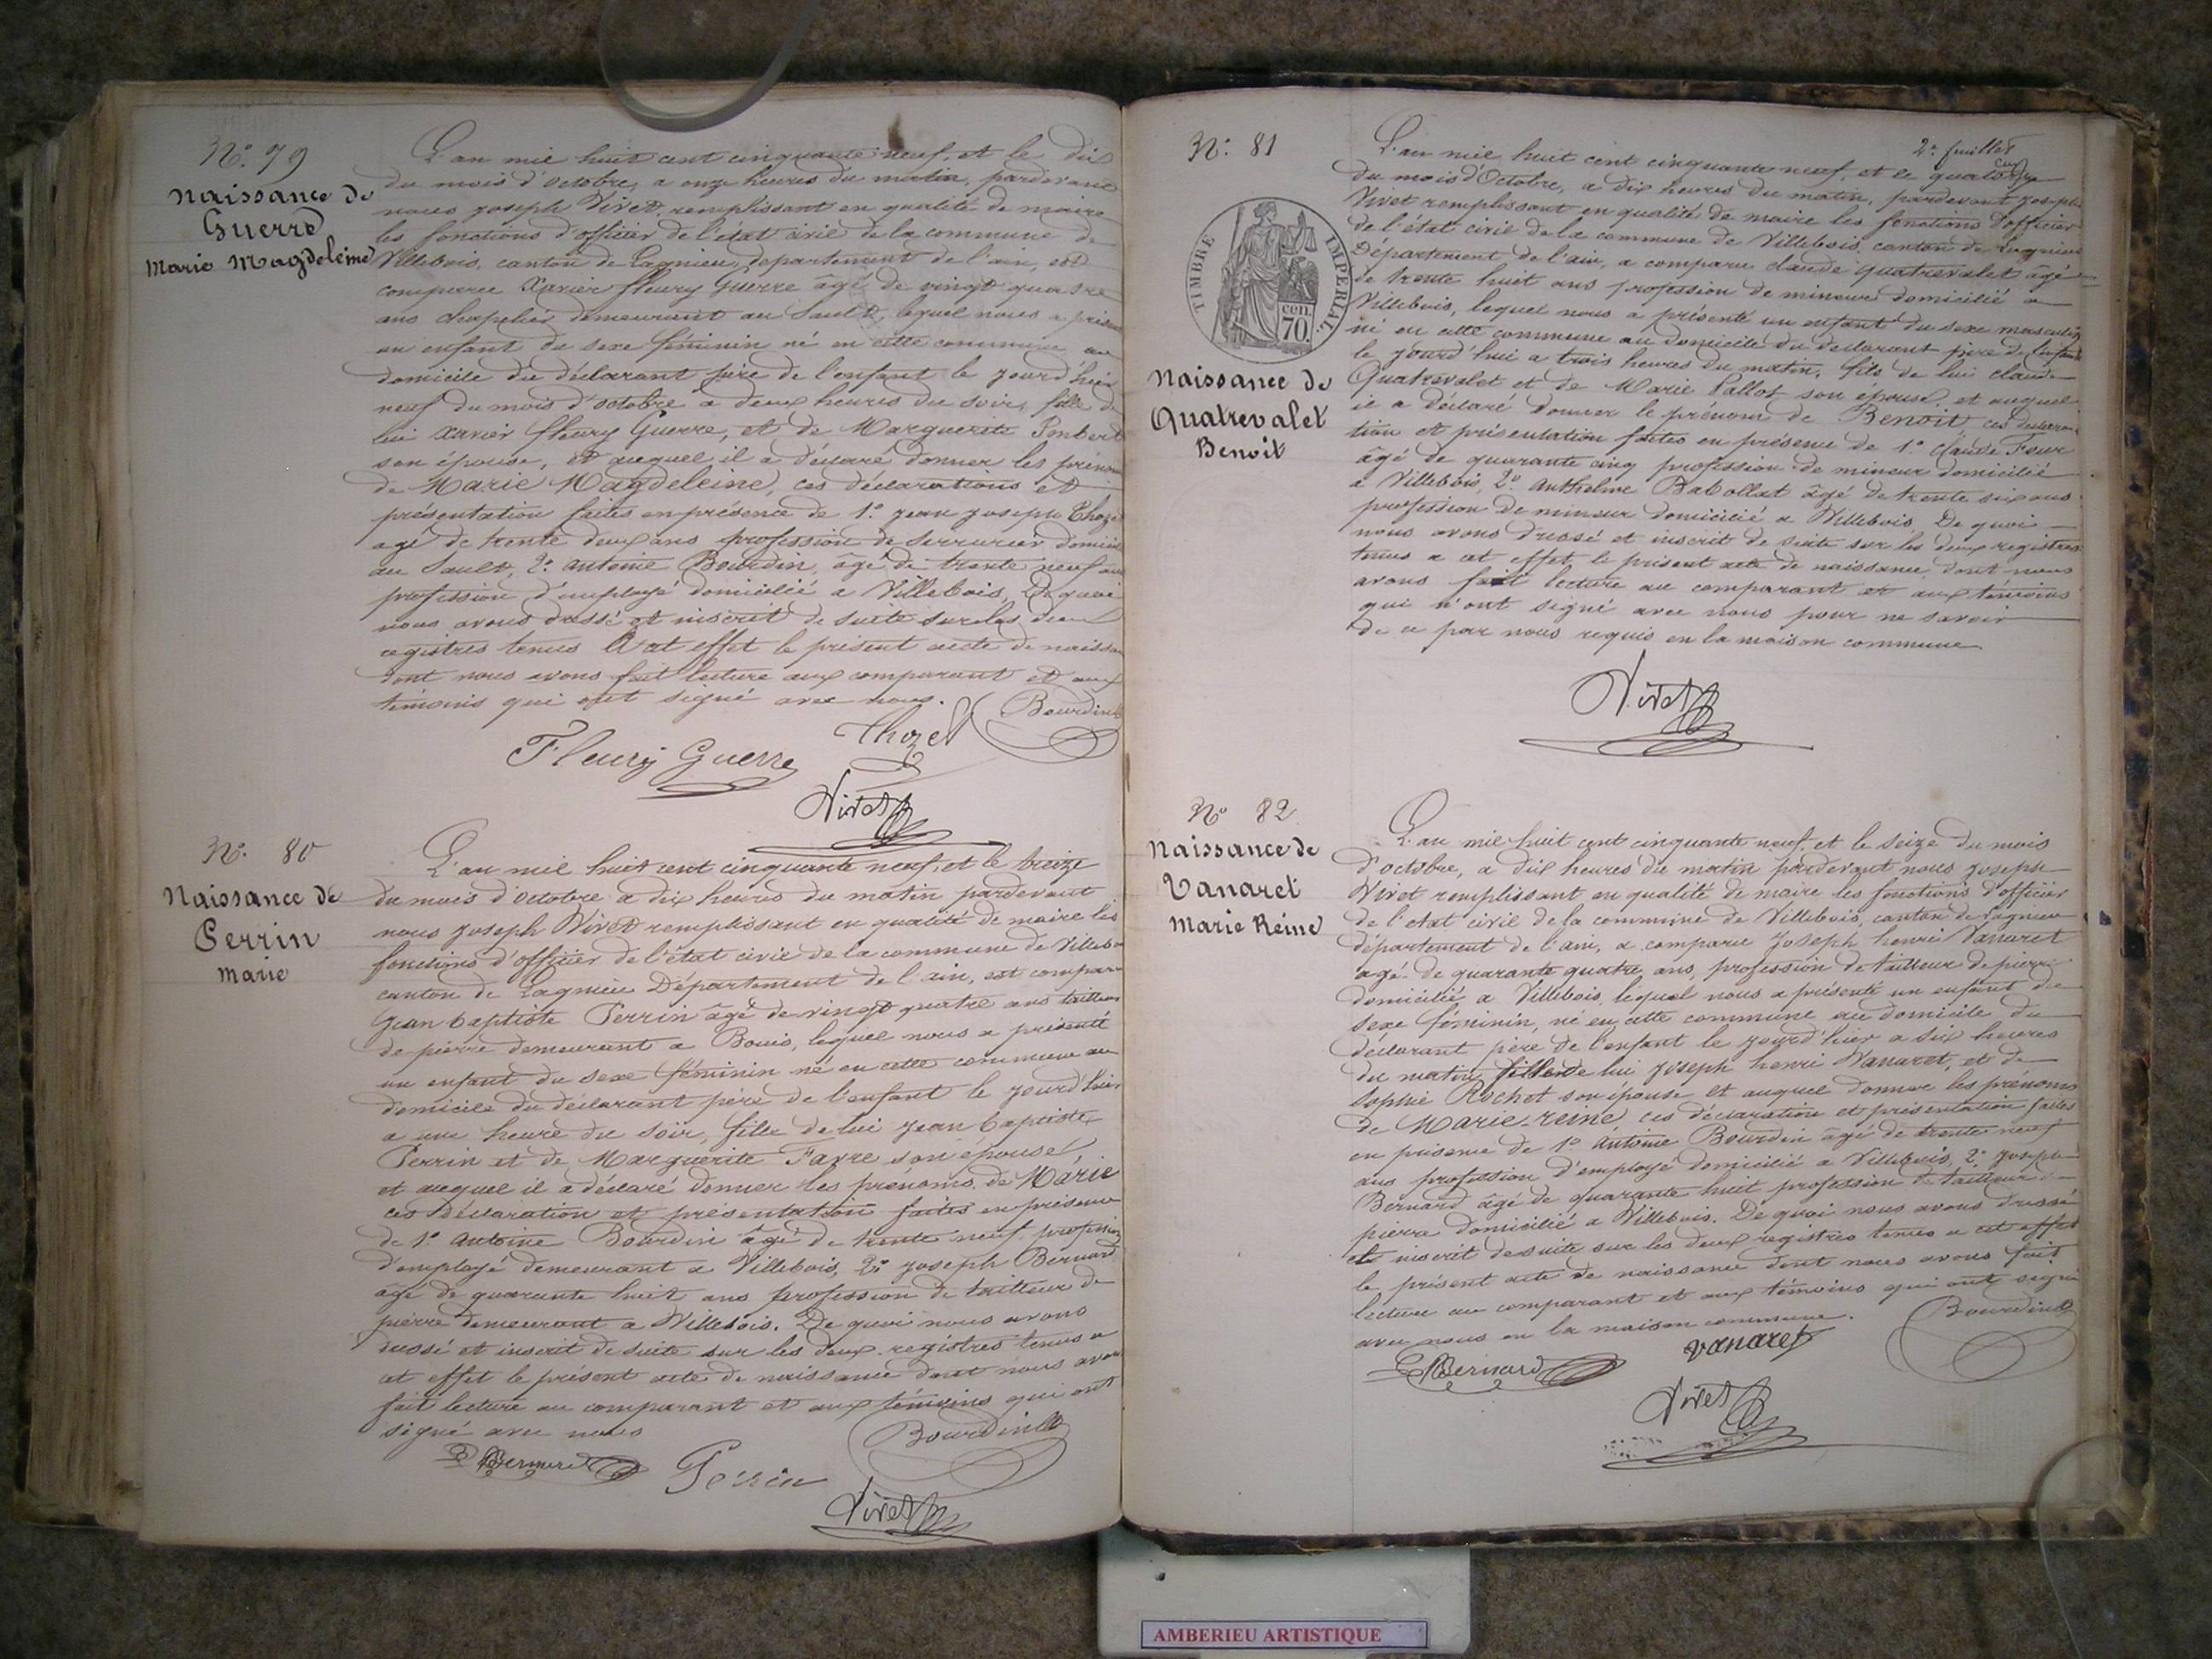 N.° 79
Naissance de
Guerre
Marie Magdeleine
L'an mil huit cent cinquante neuf, et le dix
du mois d'octobre, a onze heures du matin, pardevant
nous joseph Vivet, remplissant en qualité de maire
les fonctions d'officier de l'état civil de la commune de
Villebois, canton de Lagnieu, departement de l'ain, est
comparu Xavier fleury Guerre âgé de vingt quatre
ans chapelier demeurant au Sault, lequel nous a
un enfant du sexe féminin né en cette commune au
domicile du déclarant père de l'enfant le jourd'hier
neuf du mois d'octobre a deux heures du soir, fille de
lui Xavier fleury Guerre, et de Marguerite
son épouse, et auquel il a déclaré donner les prénoms
de Marie Magdeleine, ces déclarations et
présentation faites en présence de 1.° jean joseph Thozet
agé de trente deux ans profession de serrurier
au Sault, 2.° antoine Bourdin, âgé de trente neuf ans
profession d'employé domicilié a Villebois, De quoi
nous avons dressé et inscrit de suite sur les deux
registres tenus A cet effet le présent acte de
dont nous avons fait lecture aux comparant et aux
témoins qui ont signé avec nous.
Bourdin
Thozet
Fleury Guerre
Vivet
N.° 80
Naissance de
Perrin
Marie
L'an mil huit cent cinquante neuf, et le treize
du mois d'octobre a dix heures du matin pardevant
nous joseph Vivet remplissant en qualité de maire les
fonctions d'officier de l'état civil de la commune de
canton de Lagnieu Département de l'ain, est comparu
jean baptiste Perrin âgé de vingt quatre ans tailleur
de pierre demeurant a Bouis, lequel nous a présenté
un enfant du sexe féminin né en cette commune au
domicile du déclarant père de l'enfant le jourd'hier
a une heure du soir, fille de lui jean baptiste
Perrin et de Marguerite Favre son épouse
et auquel il a déclaré donner les prénoms de Marie
ces déclaration et présentation faites en présence
de 1.° antoine Bourdin âgé de trente neuf profession
d'employé demeurant a Villebois, 2.° joseph Bernard
âgé de quarante huit ans profession de tailleur de
pierre demeurant a Villebois. De quoi nous avons
dressé et inscrit de suite sur les deux registres tenus a
cet effet le présent acte de naissance dont nous avons
fait lecture au comparant et aux témoins qui ont
signé avec nous
Bourdin
Bernard
Perrin
Vivet
2.e feuillet
N.° 81
TIMBRE IMPERIAL
cen.
70.
Naissance de
Quatrevalet
Benoit
L'an mil huit cent cinquante neuf, et le
du mois d'Octobre, a dix heures du matin, pardevant joseph
Vivet remplissant en qualité de maire les fonctions d'officier
de l'état civil de la commune de Villebois, canton de Lagnieu
Département de l'ain, a comparu claude quatrevalet âgé
de trente huit ans profession de mineur domicilié a
Villebois, lequel nous a présenté un enfant du sexe masculin
né en cette commune au domicile du déclarant père de l'enfant
le jourd'hui a trois heures du matin, fils de lui claude
Quatrevalet et de Marie Pallot son épouse, et auquel
il a déclaré donner le prénom de Benoit ces
tion et présentation faites en présence de 1.° claude
âgé de quarante cinq profession de mineur domicilié
a Villebois, 2.° Anthelme Babollat âgé de trente six ans
profession de mineur domicilié a Villebois. De quoi
nous avons dressé et inscrit de suite sur les deux registres
tenus a cet effet le présent acte de naissance, dont nous
avons fait lecture au comparant et aux témoins
qui n'ont signé avec nous pour ne savoir
de ce par nous requis en la maison commune
Vivet
N.° 82
Naissance de
Vanaret
Marie Reine
L'an mil huit cent cinquante neuf, et le seize du mois
d'octobre, a dix heures du matin pardevant nous joseph
Vivet remplissant en qualité de maire les fonctions d'officier
de l'etat civil de la commune de Villebois, canton de Lagnieu
département de l'ain, a comparu joseph henri Vanaret
agé de quarante quatre ans, profession de tailleur de pierre
domicilié a Villebois, lequel nous a présenté un enfant du
sexe féminin, né en cette commune au domicile du
déclarant père de l'enfant le jourd'hier a six heures
du matin, fille de lui joseph henri Vanaret, et de
sophie Rochet son épouse et auquel donner les prénoms
de Marie-reine, ces déclaration et présentation faites
en présence de 1.° Antoine Bourdin âgé de trente neuf
ans profession d'employé domicilié a Villebois, 2.° joseph
Bernard âgé de quarante huit profession de tailleur de
pierre domicilié a Villebois. De quoi nous avons dressé
et inscrit de suite sur les deux registres tenus a cet effet
le présent acte de naissance dont nous avons fait
lecture au comparant et aux témoins qui ont signé
avec nous en la maison commune.
Bourdin
Vanaret
Bernard
Vivet
AMBERIEU ARTISTIQUE